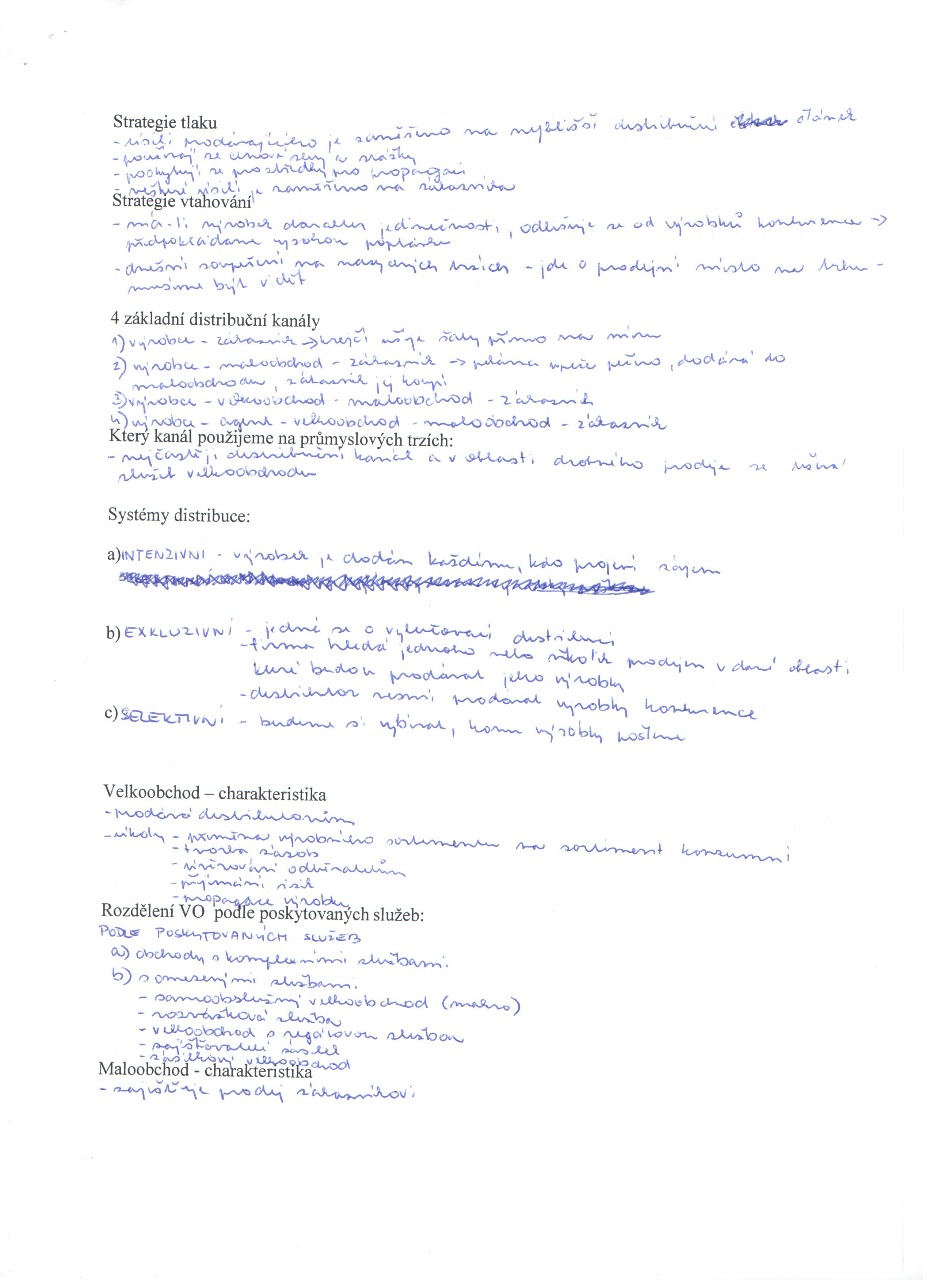 Strategie tlaku
- úsilí prodávajícího je zaměřeno na nejbližší distribuční článek
- používají se cenové slevy a srážky
- poskytují se prostředky pro propagaci
- veškeré úsilí je zaměřeno na zákazníka
Strategie vtahování
- má-li výrobek charakter jedinečnosti, odlišuje se od výrobků konkurence →
předpokládáme vysokou poptávku
- dnešní soupeření na nasycených trzích - jde o prodejní místo na trhu -
musíme být vidět
4 základní distribuční kanály
1) výrobce - zákazník → krejčí ušije šaty přímo na míru
2) výrobce - maloobchod - zákazník → pekárna upeče pečivo, dodává do
maloobchodu, zákazník jej koupí
3) výrobce - velkoobchod - maloobchod - zákazník
4) výrobce - agent - velkoobchod - maloobchod - zákazník
Který kanál použijeme na průmyslových trzích:
- nejčastěji distribuční kanál a v oblasti drobného prodeje se užívá
služeb velkoobchodu
Systémy distribuce:
a) INTENZIVNÍ - výrobek je dodán každému, kdo projeví zájem
b) EXKLUZIVNÍ - jedná se o vylučovací distribuci
- firma hledá jednoho nebo několik prodejen v dané oblasti
které budou prodávat jeho výrobky
- distributor nesmí prodávat výrobky konkurence
c) SELEKTIVNÍ - budeme si vybírat, komu výrobky pošleme
Velkoobchod – charakteristika
- prodává distributorům
- úkoly - přeměna výrobního sortimentu na sortiment konzumní
- tvorba zásob
- úvěrování odběratelům
- přijímání rizik
- propagace výrobku
Rozdělení VO podle poskytovaných služeb:
PODLE POSKYTOVANÝCH SLUŽEB
a) obchody s komplexními službami
b) s omezenými službami
- samoobslužný velkoobchod (makro)
- rozvážková služba
- velkoobchod s regálovou službou
- zajišťovatelé zásilek
- zásilkový velkoobchod
Maloobchod - charakteristika
- zajišťuje prodej zákazníkovi